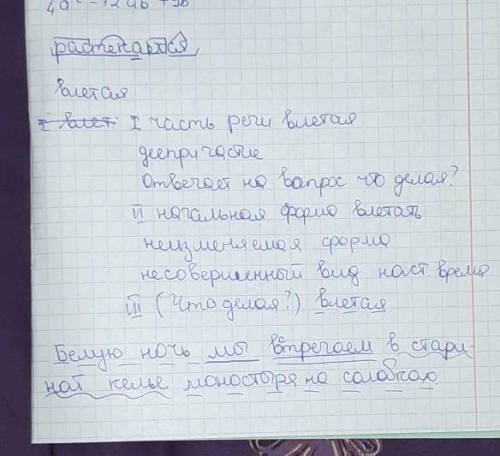 4a² - 12ab + 9b
растекаться
влетая
I влет I часть речи влетая
деепричастие
Отвечает на вапрос что делая?
II начальная форма влетать
неизменяемая форма
несовершенный вид наст время
III (Что делая?) влетая
Белую ночь мы встречаем в стари-
ной келье моностыря на салавках.